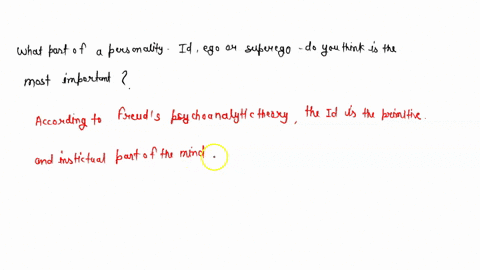 What part of a personality - Id, ego or superego - do you think is the
most important ?
According to Freud's psychoanalytic theory, the Id is the primitive.
and instictual part of the mind .